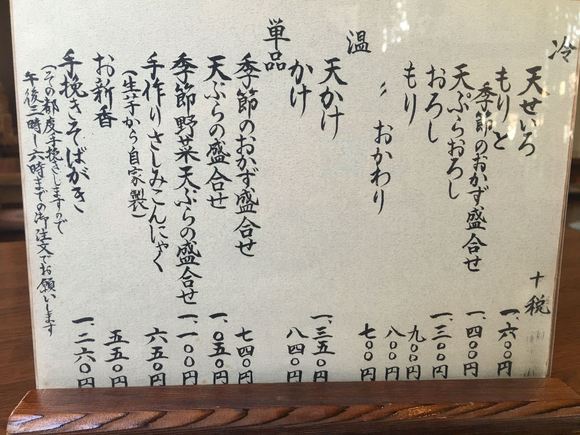 冷
天せいろ 一、六〇〇円
もりと
季節のおかず盛合せ 一、四〇〇円
天ぷらおろし 一、三〇〇円
おろし 九〇〇円
もり 八〇〇円
〃 おかわり 七〇〇円
温
天かけ 一、三五〇円
かけ 八四〇円
単品
季節のおかず盛合せ 七四〇円
天ぷらの盛合せ 一、〇五〇円
季節野菜天ぷらの盛合せ 一、一〇〇円
手作りさしみこんにゃく 六五〇円
(生芋から自家製)
お新香 五五〇円
手挽きそばがき 一、二六〇円
(その都度手挽きしますので
午後三時〜六時までの御注文でお願いします
十税